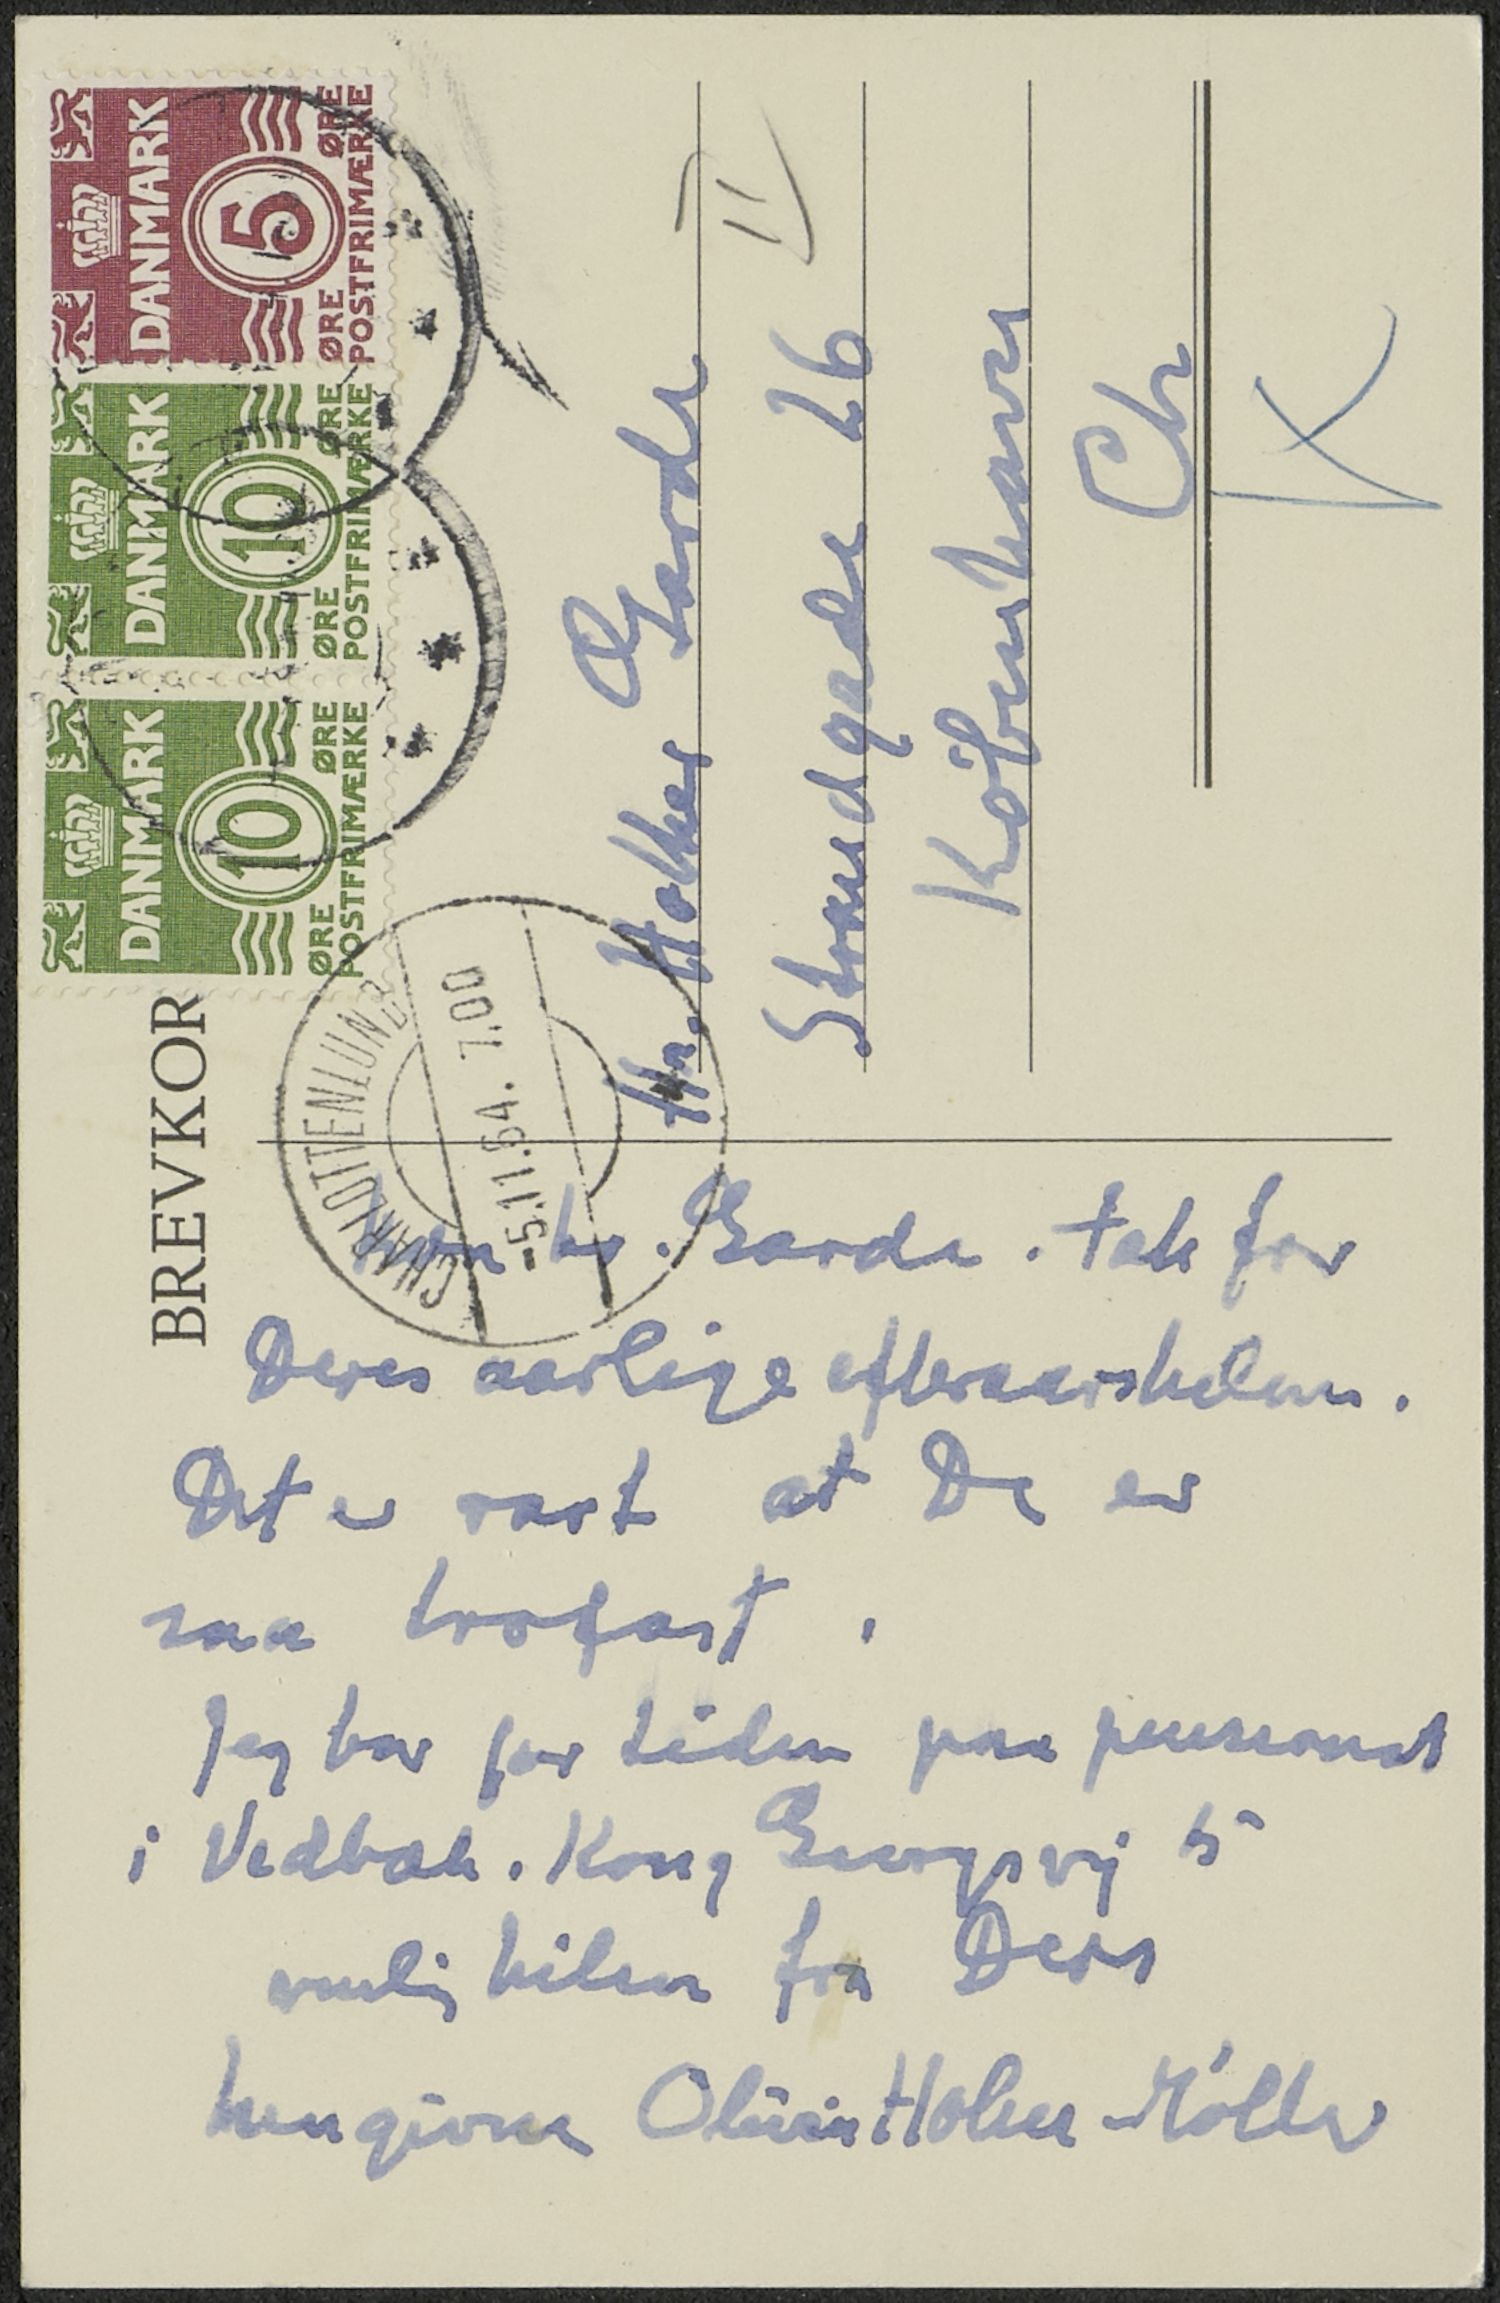 DANMARK
5
ØRE ØRE
POSTFRIMÆRKE
DANMARK
10
ØRE ØRE
POSTFRIMÆRKE
DANMARK
10
ØRE ØRE
POSTFRIMÆRKE
BREVKOR
CHARLOTTENLUND
-5.11.64. 7.00
Hr. Holger Garde
Strandgade 26
Köbenhavn
Ch
K
Kære hr. Garde. Tak for
Deres aarlige efteraarshilsen.
Det er rart at De er
saa trofast.
Jeg bor for tiden paa pensionat
i Vedbæk. Kong Georgsvej 5
venlig hilsen fra Deres
hengivne Olivia Holm-Möller